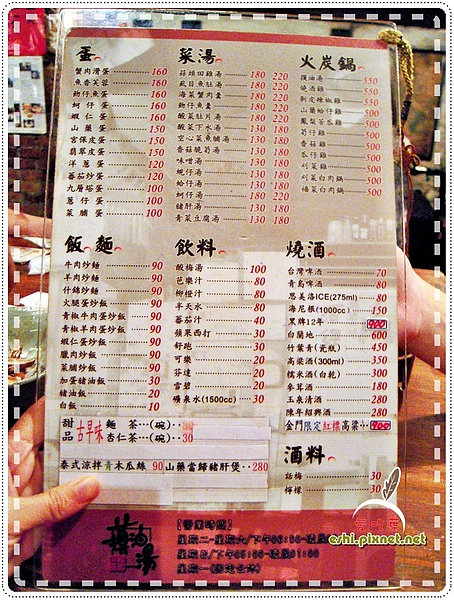 蛋
蟹肉滑蛋 160
魚香芙蓉 160
魩仔魚蛋 160
蚵仔蛋 160
蝦仁蛋 160
山藥蛋 150
宮保皮蛋 150
翡翠皮蛋 150
洋蔥蛋 120
蕃茄炒蛋 120
九層塔蛋 100
蔥仔蛋 100
菜脯蛋 100
菜湯
菇頭田雞湯 180 220
虱目魚肚湯 180 220
海菜蟹肉羹 180 220
魩仔魚羹 180 220
酸菜肚片湯 180 220
酸菜下水湯 130 180
空心菜魚脯湯 130 180
香菇脆筍湯 130 180
味噌湯 130 180
蜆仔湯 130 180
蛤仔湯 130 180
蚵仔湯 130 180
豬肝湯 130 180
青菜豆腐湯 130 180
火炭鍋
饌油湯 550
燒酒雞 550
剝皮辣椒雞 550
山藥蛤仔雞 500
鳳梨苦瓜雞 500
筍仔雞 500
香菇雞 500
瓜仔雞 500
刈菜雞 500
刈菜白肉鍋 500
酸菜白肉鍋 500
飯 麵
牛肉炒麵 90
羊肉炒麵 90
什錦炒麵 90
火腿蛋炒飯 90
青椒牛肉蛋炒飯 90
青椒羊肉蛋炒飯 90
蝦仁蛋炒飯 90
臘肉炒飯 90
菜脯炒飯 90
加蛋豬油飯 30
豬油飯 20
白飯 10
飲料
酸梅湯 100
芭樂汁 80
柳橙汁 80
半天水 80
蕃茄汁 40
蘋果西打 30
舒跑 30
可樂 20
芬達 20
雪碧 20
礦泉水(1500cc) 30
燒酒
台灣啤酒 70
青島啤酒 80
思美洛ICE(275ml) 80
海尼根(1000cc) 150
黑牌12年 900
白蘭地 600
竹葉青(瓷瓶) 450
高粱酒(300ml) 350
糯米酒(白乾) 300
參茸酒 180
玉泉清酒 280
陳年紹興酒 280
金門限定紅標高粱 900
甜品 古早味 麵茶‥(碗)‥30
杏仁茶‥(碗)‥30
泰式涼拌青木瓜絲 90 山藥當歸豬肝煲‥280
酒料
話梅 30
檸檬 30
【營業時間】
eshi.pixnet.net